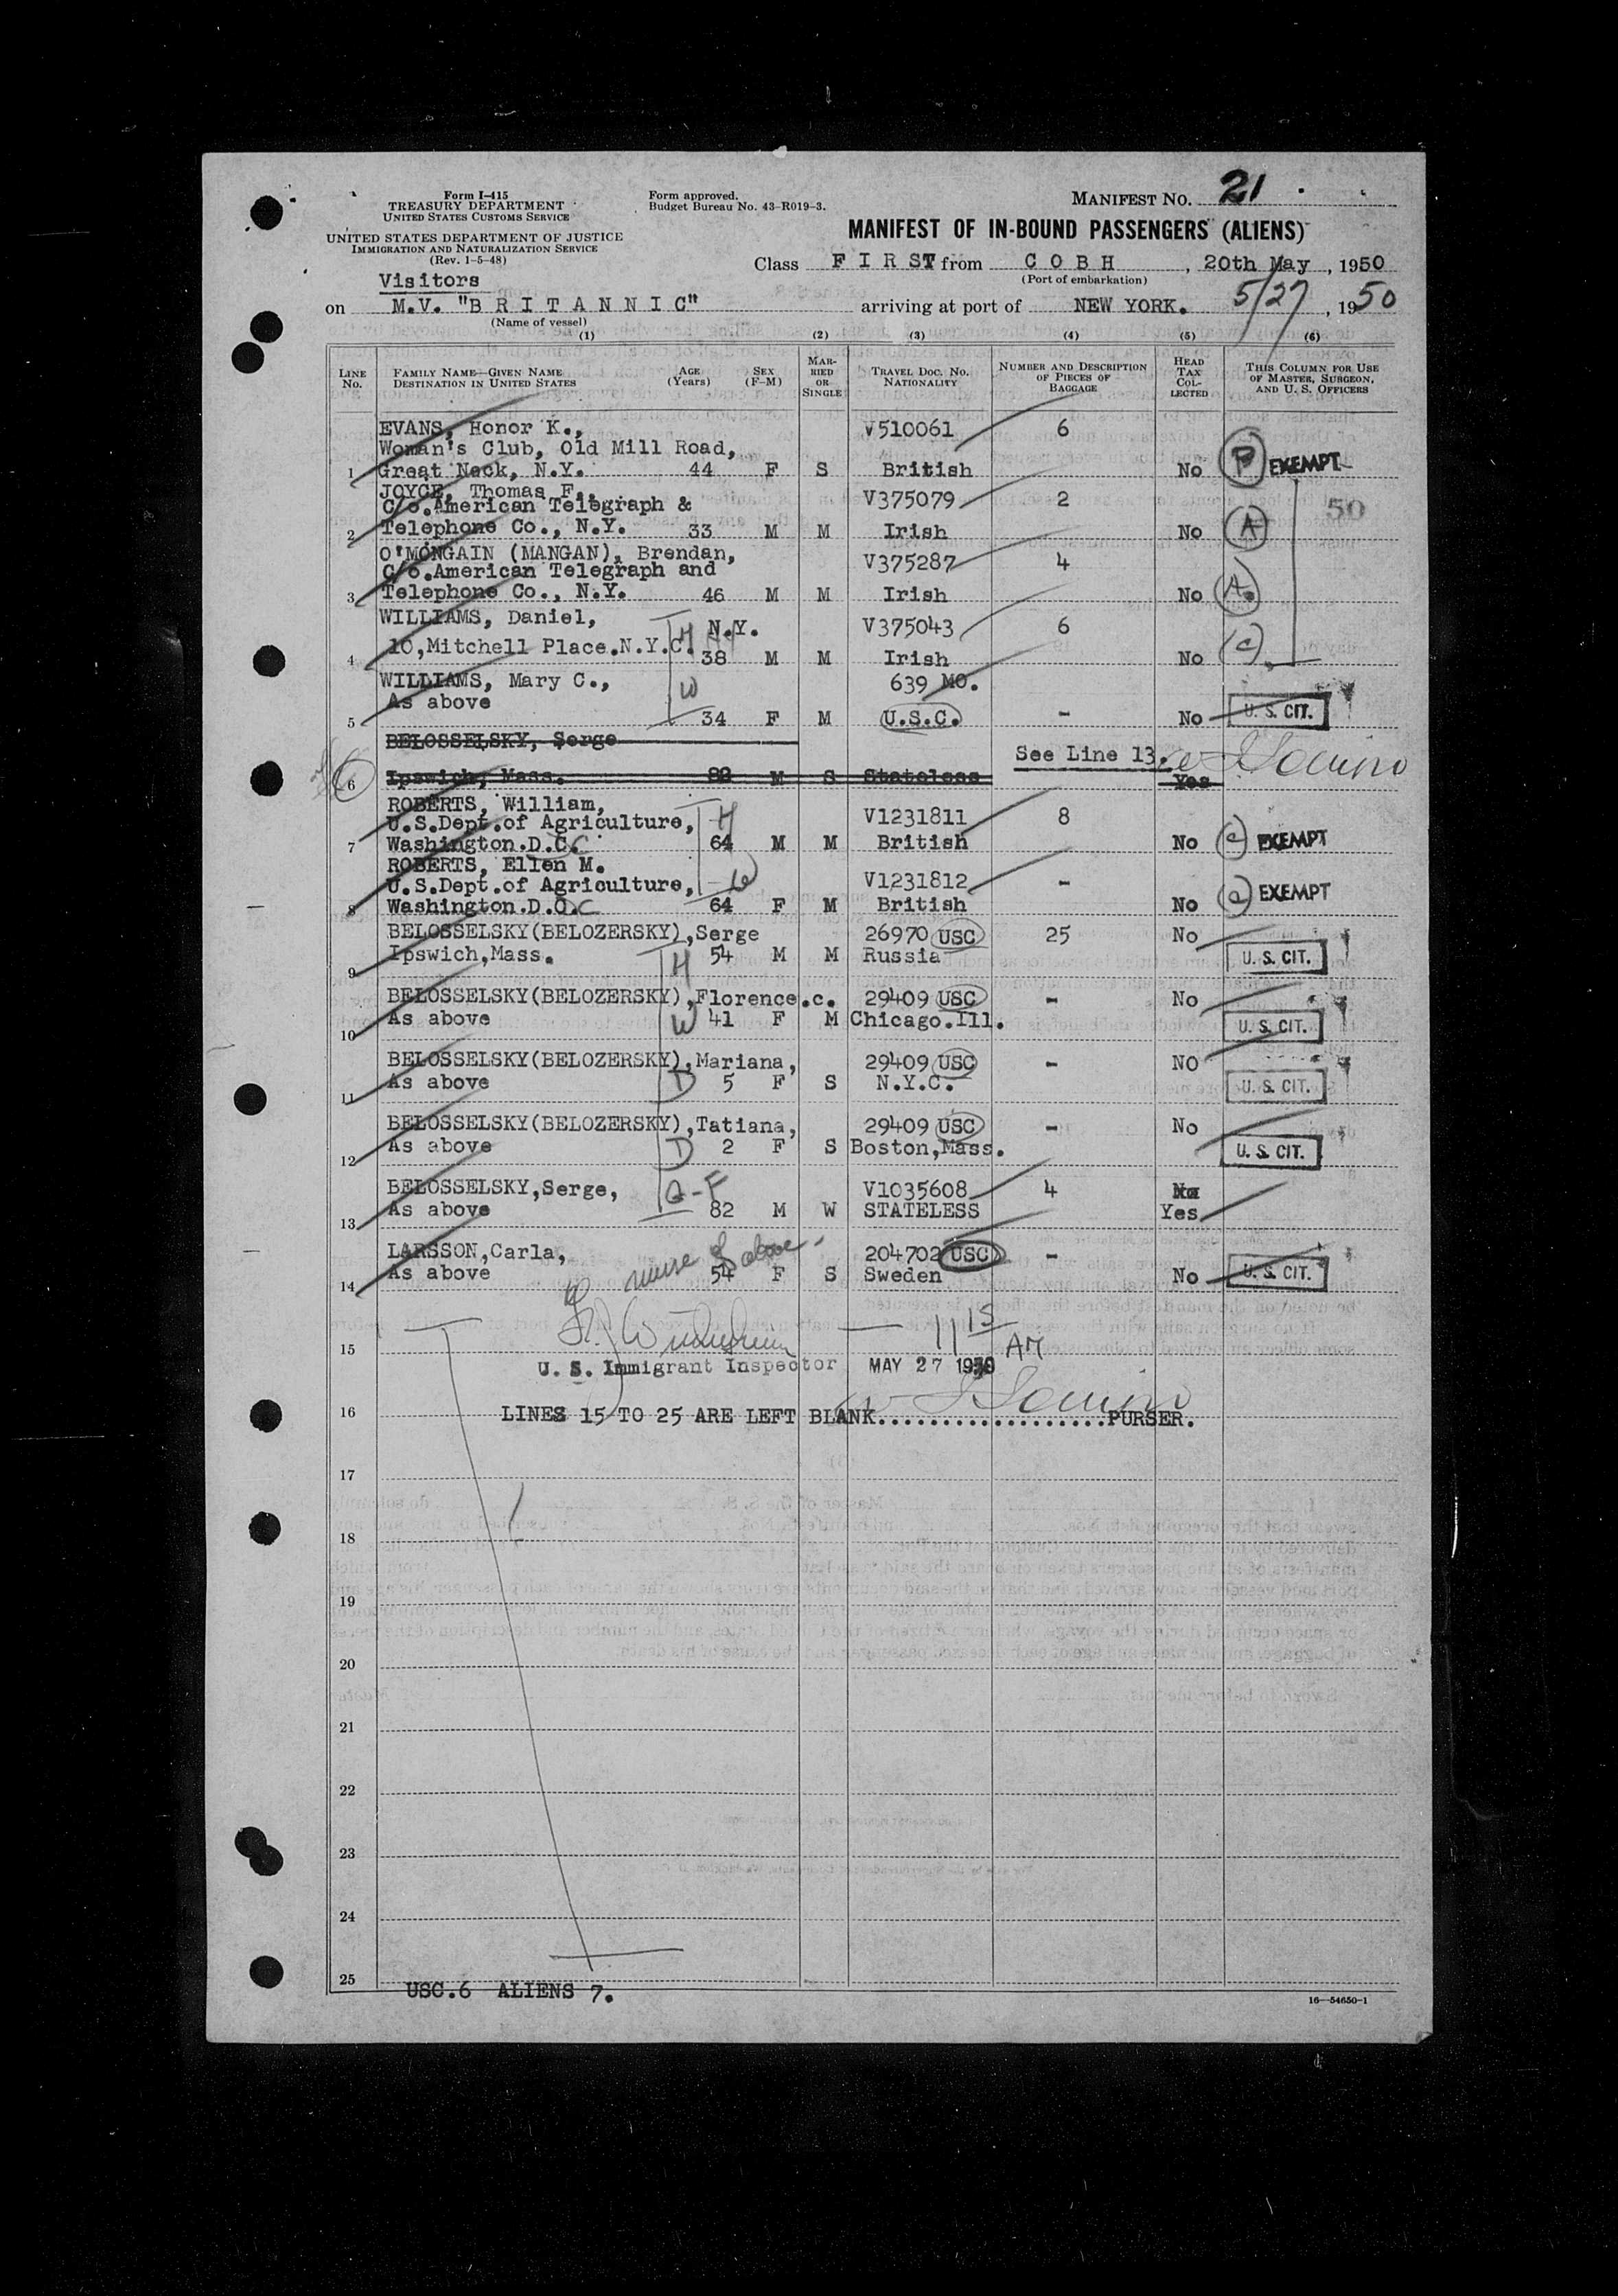 Form I-415
TREASURY DEPARTMENT
UNITED STATES CUSTOMS SERVICE
UNITED STATES DEPARTMENT OF JUSTICE
IMMIGRATION AND NATURALIZATION SERVICE
(Rev. 1-5-48)
Form approved.
Budget Bureau No. 43-R019-3.
MANIFEST NO. 21
MANIFEST OF IN-BOUND PASSENGERS (ALIENS)
Class FIRST from COBH, 20th May, 1950
(Port of embarkation)
Visitors
on M.V. "BRITANNIC" arriving at port of NEW YORK. 5/27, 1950
(Name of vessel)
(1) (2) (3) (4) (5) (6)
LINE No. FAMILY NAME—GIVEN NAME DESTINATION IN UNITED STATES AGE (Years) SEX (F-M) MARRIED OR SINGLE TRAVEL DOC. NO. NATIONALITY NUMBER AND DESCRIPTION OF PIECES OF BAGGAGE HEAD TAX COLLECTED THIS COLUMN FOR USE OF MASTER, SURGEON, AND U. S. OFFICERS
EVANS, Honor K., V510061 6
Woman's Club, Old Mill Road,
1 Great Neck, N.Y. 44 F S British No P EXEMPT
JOYCE, Thomas F., V375079 2 50
C/o.American Telegraph &
2 Telephone Co., N.Y. 33 M M Irish No A
O'MONGAIN (MANGAN), Brendan, V375287 4
C/o.American Telegraph and
3 Telephone Co., N.Y. 46 M M Irish No A.
WILLIAMS, Daniel, N.Y. V375043 6
10,Mitchell Place.N.Y.C. H
4 38 M M Irish No (C)
WILLIAMS, Mary C., 639 MO.
As above W
5 34 F M U.S.C. - No U. S. CIT.
BELOSSELSKY, Serge See Line 13.
6 Ipswich, Mass. 82 M S Stateless Yes
ROBERTS, William, V1231811 8
U.S.Dept.of Agriculture, H
7 Washington.D.C. 64 M M British No (C) EXEMPT
ROBERTS, Ellen M. V1231812 -
U.S.Dept.of Agriculture, W
8 Washington.D.C. 64 F M British No (C) EXEMPT
BELOSSELSKY(BELOZERSKY),Serge 26970 USC 25 No
9 Ipswich,Mass. H 54 M M Russia U. S. CIT.
BELOSSELSKY(BELOZERSKY),Florence.c. 29409 USC - No
10 As above W 41 F M Chicago.Ill. U. S. CIT.
BELOSSELSKY(BELOZERSKY),Mariana, 29409 USC - NO
11 As above D 5 F S N.Y.C. U. S. CIT.
BELOSSELSKY(BELOZERSKY),Tatiana, 29409 USC - No
12 As above D 2 F S Boston,Mass. U. S. CIT.
BELOSSELSKY,Serge, G-F V1035608 4 No
13 As above 82 M W STATELESS Yes
LARSSON,Carla, nurse of above 204702 USC -
14 As above 54 F S Sweden No U. S. CIT.
11 15 AM
15
U. S. Immigrant Inspector MAY 27 1950
16 LINES 15 TO 25 ARE LEFT BLANK....................PURSER.
17
18
19
20
21
22
23
24
25
USC.6 ALIENS 7.
16—54650-1